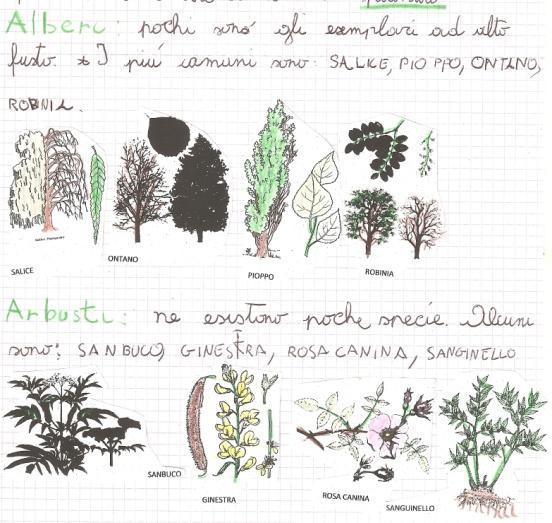 Alberi: pochi sono gli esemplari ad alto
fusto * I più comuni sono: SALICE, PIOPPO, ONTANO,
ROBINIA.
SALICE
ONTANO
PIOPPO
ROBINIA
Arbusti: ne esistono poche specie. Alcuni
sono: SANBUCO, GINESTRA, ROSA CANINA, SANGINELLO
SANBUCO
GINESTRA
ROSA CANINA
SANGUINELLO